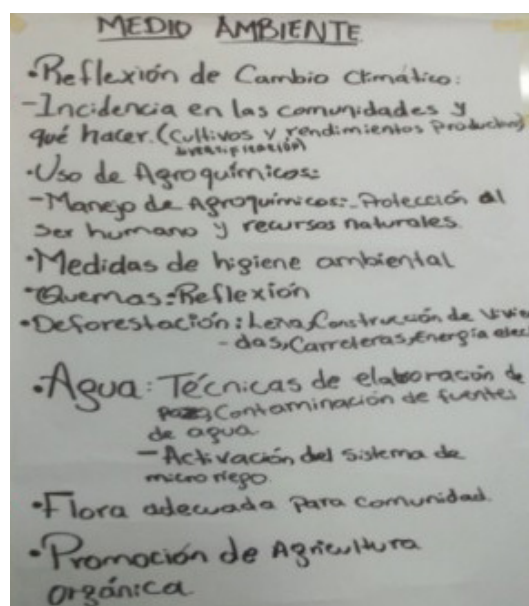 MEDIO AMBIENTE
•Reflexión de Cambio Climático:
-Incidencia en las comunidades y
qué hacer. (Cultivos y rendimientos Productivo)
diversificación
•Uso de Agroquímicos:
-Manejo de Agroquímicos:-Protección al
ser humano y recursos naturales.
•Medidas de higiene ambiental
•Quemas:Reflexión
•Deforestación: Leña, Construcción de Vivien
- das, Carreteras, Energía elec
•Agua: Técnicas de elaboración de
Contaminación de fuentes
de agua.
- Activación del sistema de
micro riego.
•Flora adecuada para comunidad.
•Promoción de Agricultura
orgánica.